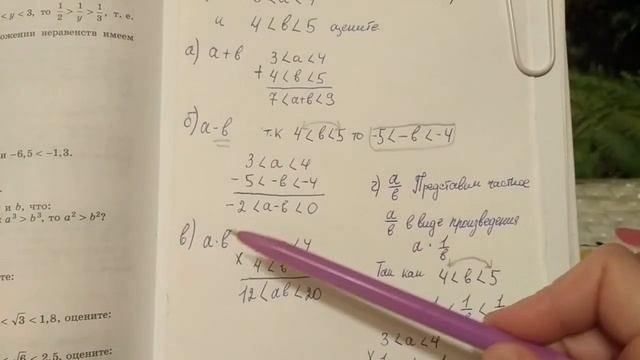 < y < 3, то 1/2 > 1/y > 1/3, т. е.
ожении неравенств имеем
и −6,5 < −1,3.
и b, что:
a³ > b³, то a² > b²?
< √3 < 1,8, оцените:
< √6 < 2,5, оцените:
и 4<в<5 оцените
а) а+в 3<а<4
+ 4<в<5
7<а+в<9
б) а-в т.к 4<в<5 то -5<-в<-4
3<а<4
-5<-в<-4
-2<а-в<0
в) а·в <4
× 4<в
12<ав<20
г) а/в Представим частное
а/в в виде произведения
а · 1/в
Так как 4<в<5
< 1/в < 1
3<а<4
×